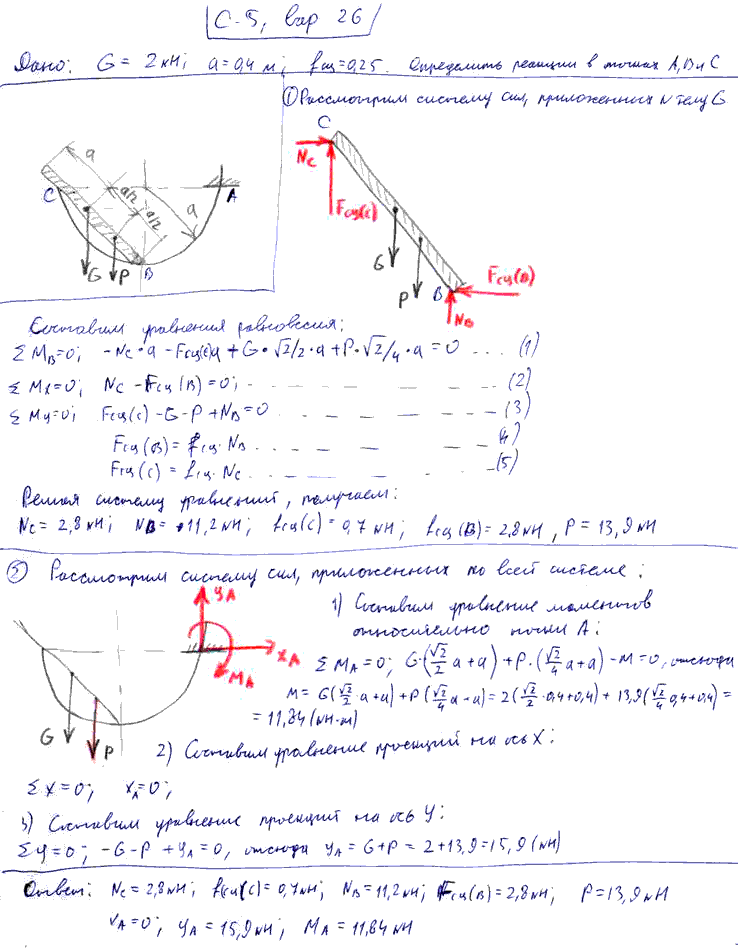 С-5, вар 26
Дано: G = 2 кН; a = 0,4 м; fсц = 0,25. Определить реакции в точках A, B и C
① Рассмотрим систему сил, приложенных к телу G
C
Nc
Fсц(c)
G
P
B
Fсц(B)
NB
a
a/2
a/2
a
C
A
G
P
B
Составим уравнения равновесия:
ΣMB=0; -Nc·a - Fсц(c)a + G·√2/2·a + P·√2/4·a = 0 ... (1)
ΣMx=0; Nc - Fсц(B) = 0; (2)
ΣMy=0; Fсц(c) - G - P + NB = 0 (3)
Fсц(B) = fсц·NB (4)
Fсц(c) = fсц·Nc (5)
Решая систему уравнений, получаем:
Nc = 2,8 кН; NB = 11,2 кН; fсц(c) = 0,7 кН; fсц(B) = 2,8 кН, P = 13,9 кН
② Рассмотрим систему сил, приложенных ко всей системе:
yA
xA
MA
G
P
1) Составим уравнение моментов
относительно точки A:
ΣMA=0; G·(√2/2 a+a) + P·(√2/4 a+a) - M = 0, отсюда
M = G(√2/2·a+a) + P(√2/4 a+a) = 2(√2/2·0,4+0,4) + 13,9(√2/4 0,4+0,4) =
= 11,84 (кН·м)
2) Составим уравнение проекций на ось X:
ΣX=0; xA=0;
3) Составим уравнение проекций на ось Y:
ΣY=0; -G-P + yA = 0, отсюда yA = G+P = 2+13,9 = 15,9 (кН)
Ответ: Nc = 2,8 кН; fсц(c) = 0,7 кН; NB = 11,2 кН; Fсц(B) = 2,8 кН; P = 13,9 кН
xA = 0; yA = 15,9 кН; MA = 11,84 кН